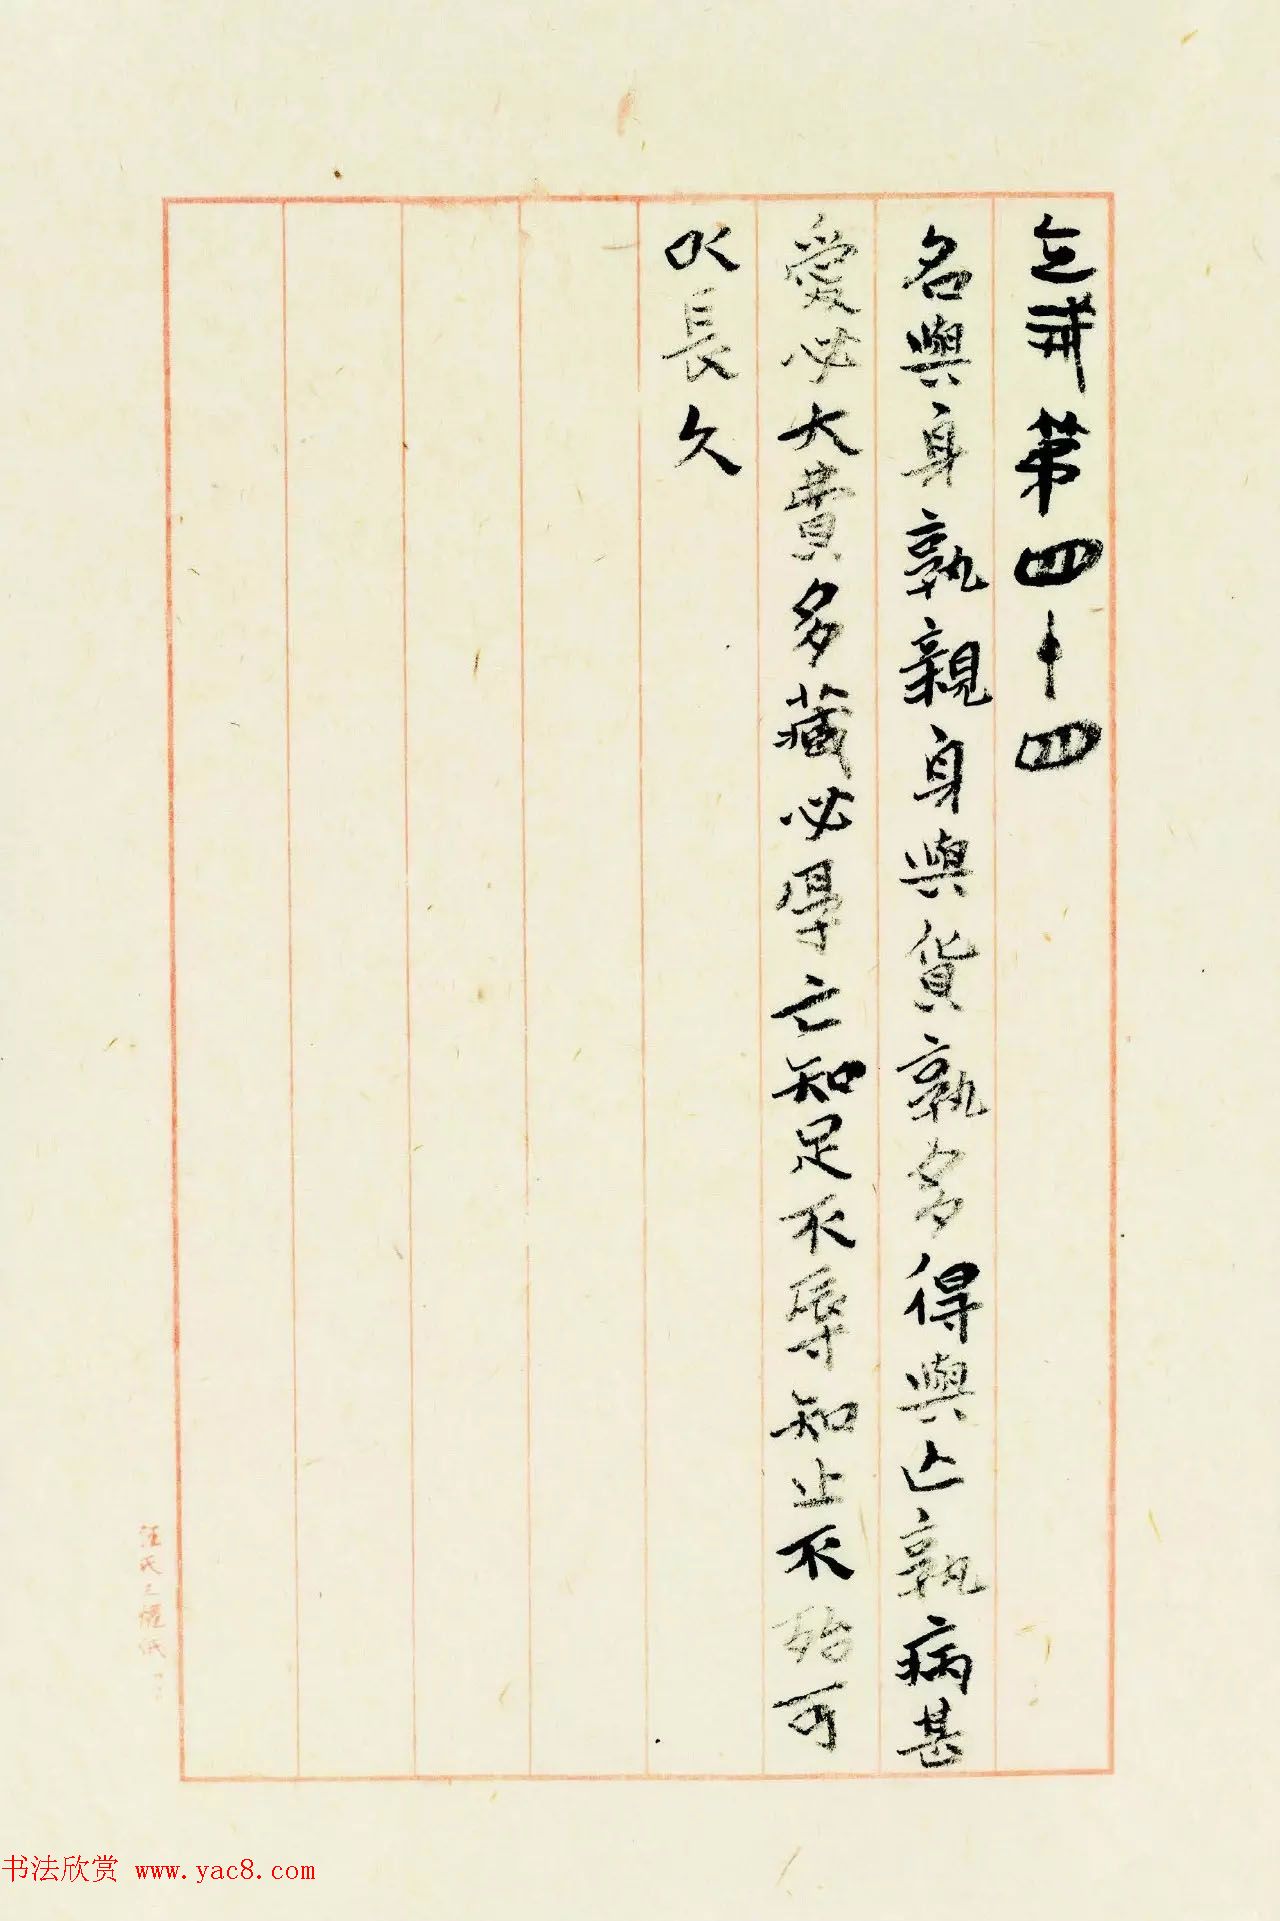 立戒第四十四
名與身孰親身與貨孰多得與亡孰病甚
愛必大費多藏必厚亡知足不辱知止不殆可
以長久
汪氏三
书法欣赏 www.yac8.com